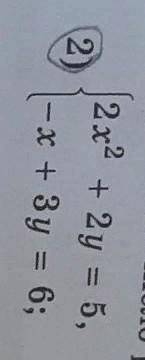 2) 2x² + 2y = 5,
−x + 3y = 6;